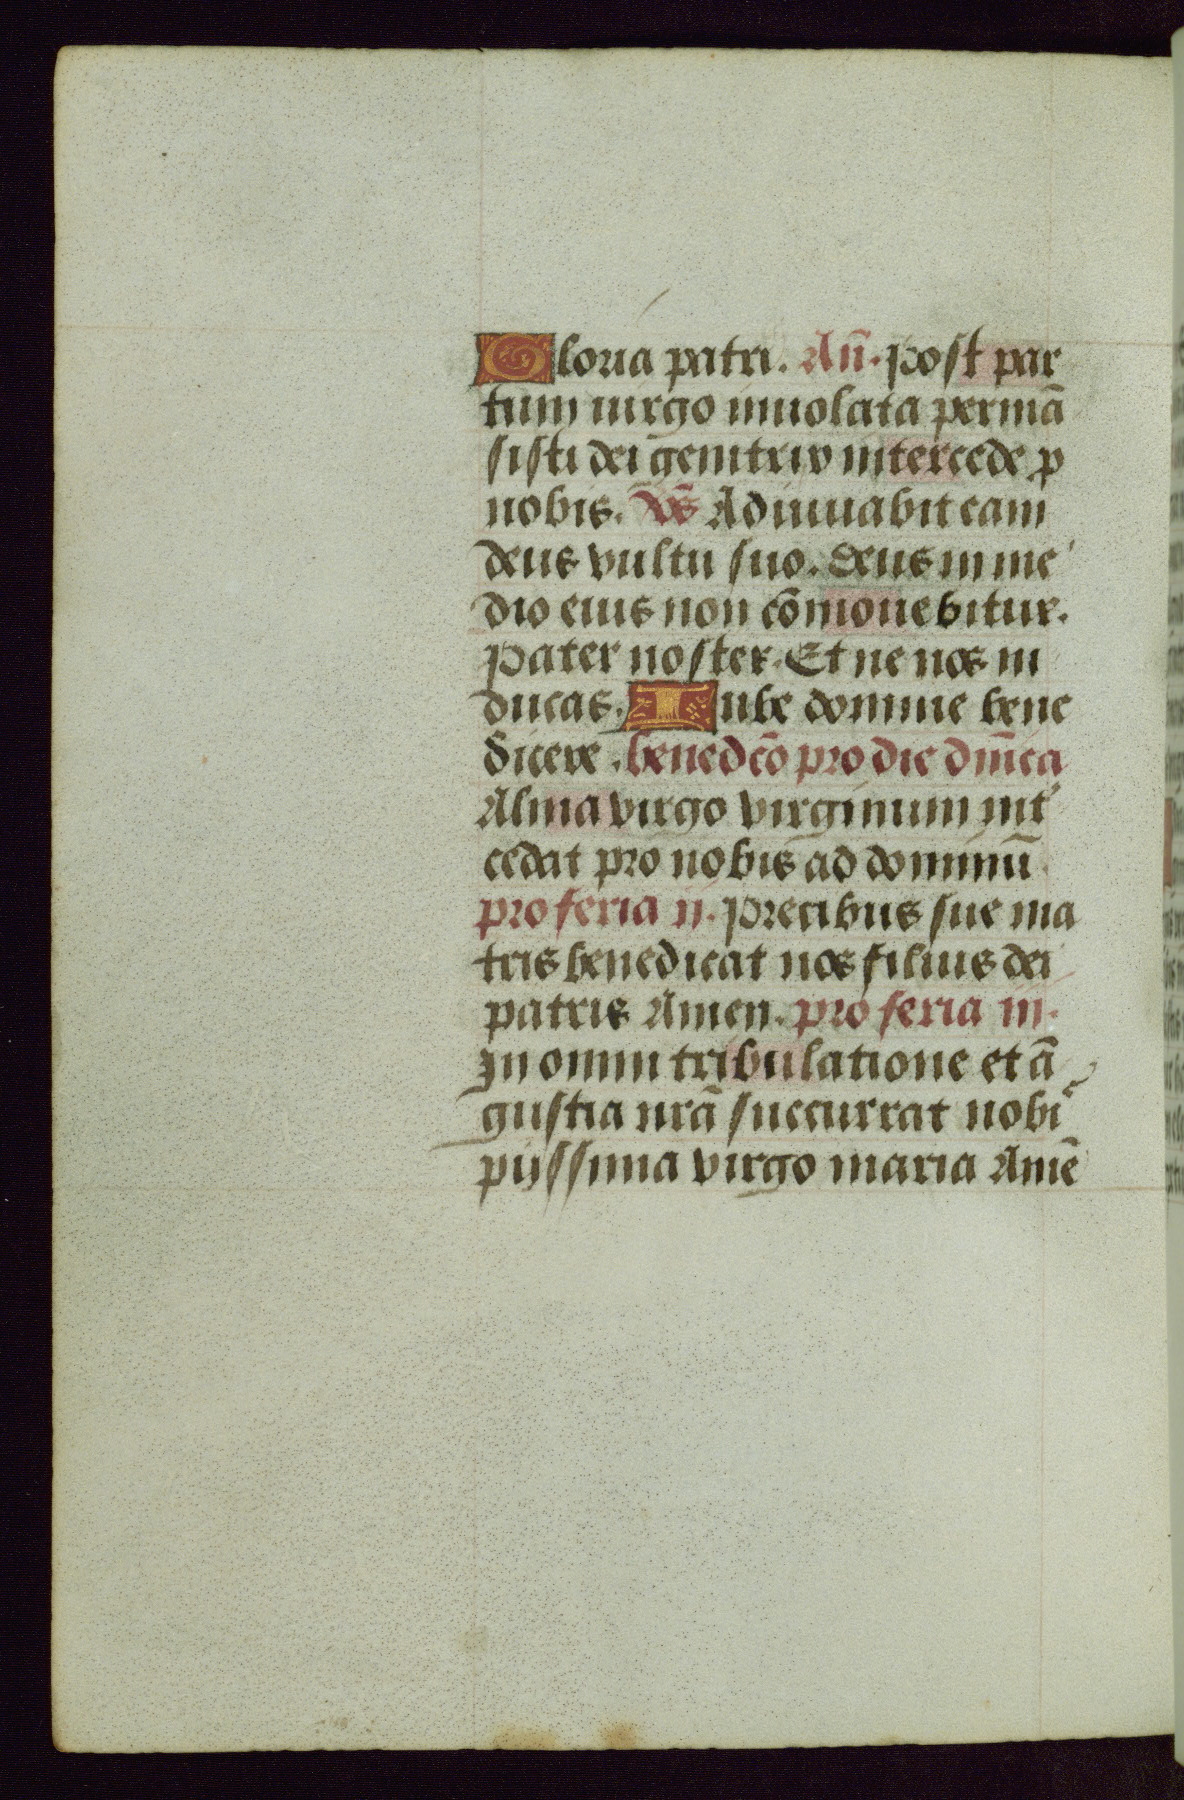 Gloria patri. Añ. post par
tum uirgo inuiolata permã
sisti dei genitrix intercede p
nobis. Vs̃ Adiuuabit eam
deus vultu suo. Deus in me
dio eius non cõmouebitur.
pater noster. Et ne nos in
ducas. Iube domine bene
dicere. benedcõ pro die dñica
Alma virgo virginum int'
cedat pro nobis ad dominũ
pro feria ii. precibus sue ma
tris benedicat nos filius dei
patris Amen. pro feria iii.
In omni tribulatione et ã
gustia nrã succurrat nobis
pijssima virgo maria Amẽ